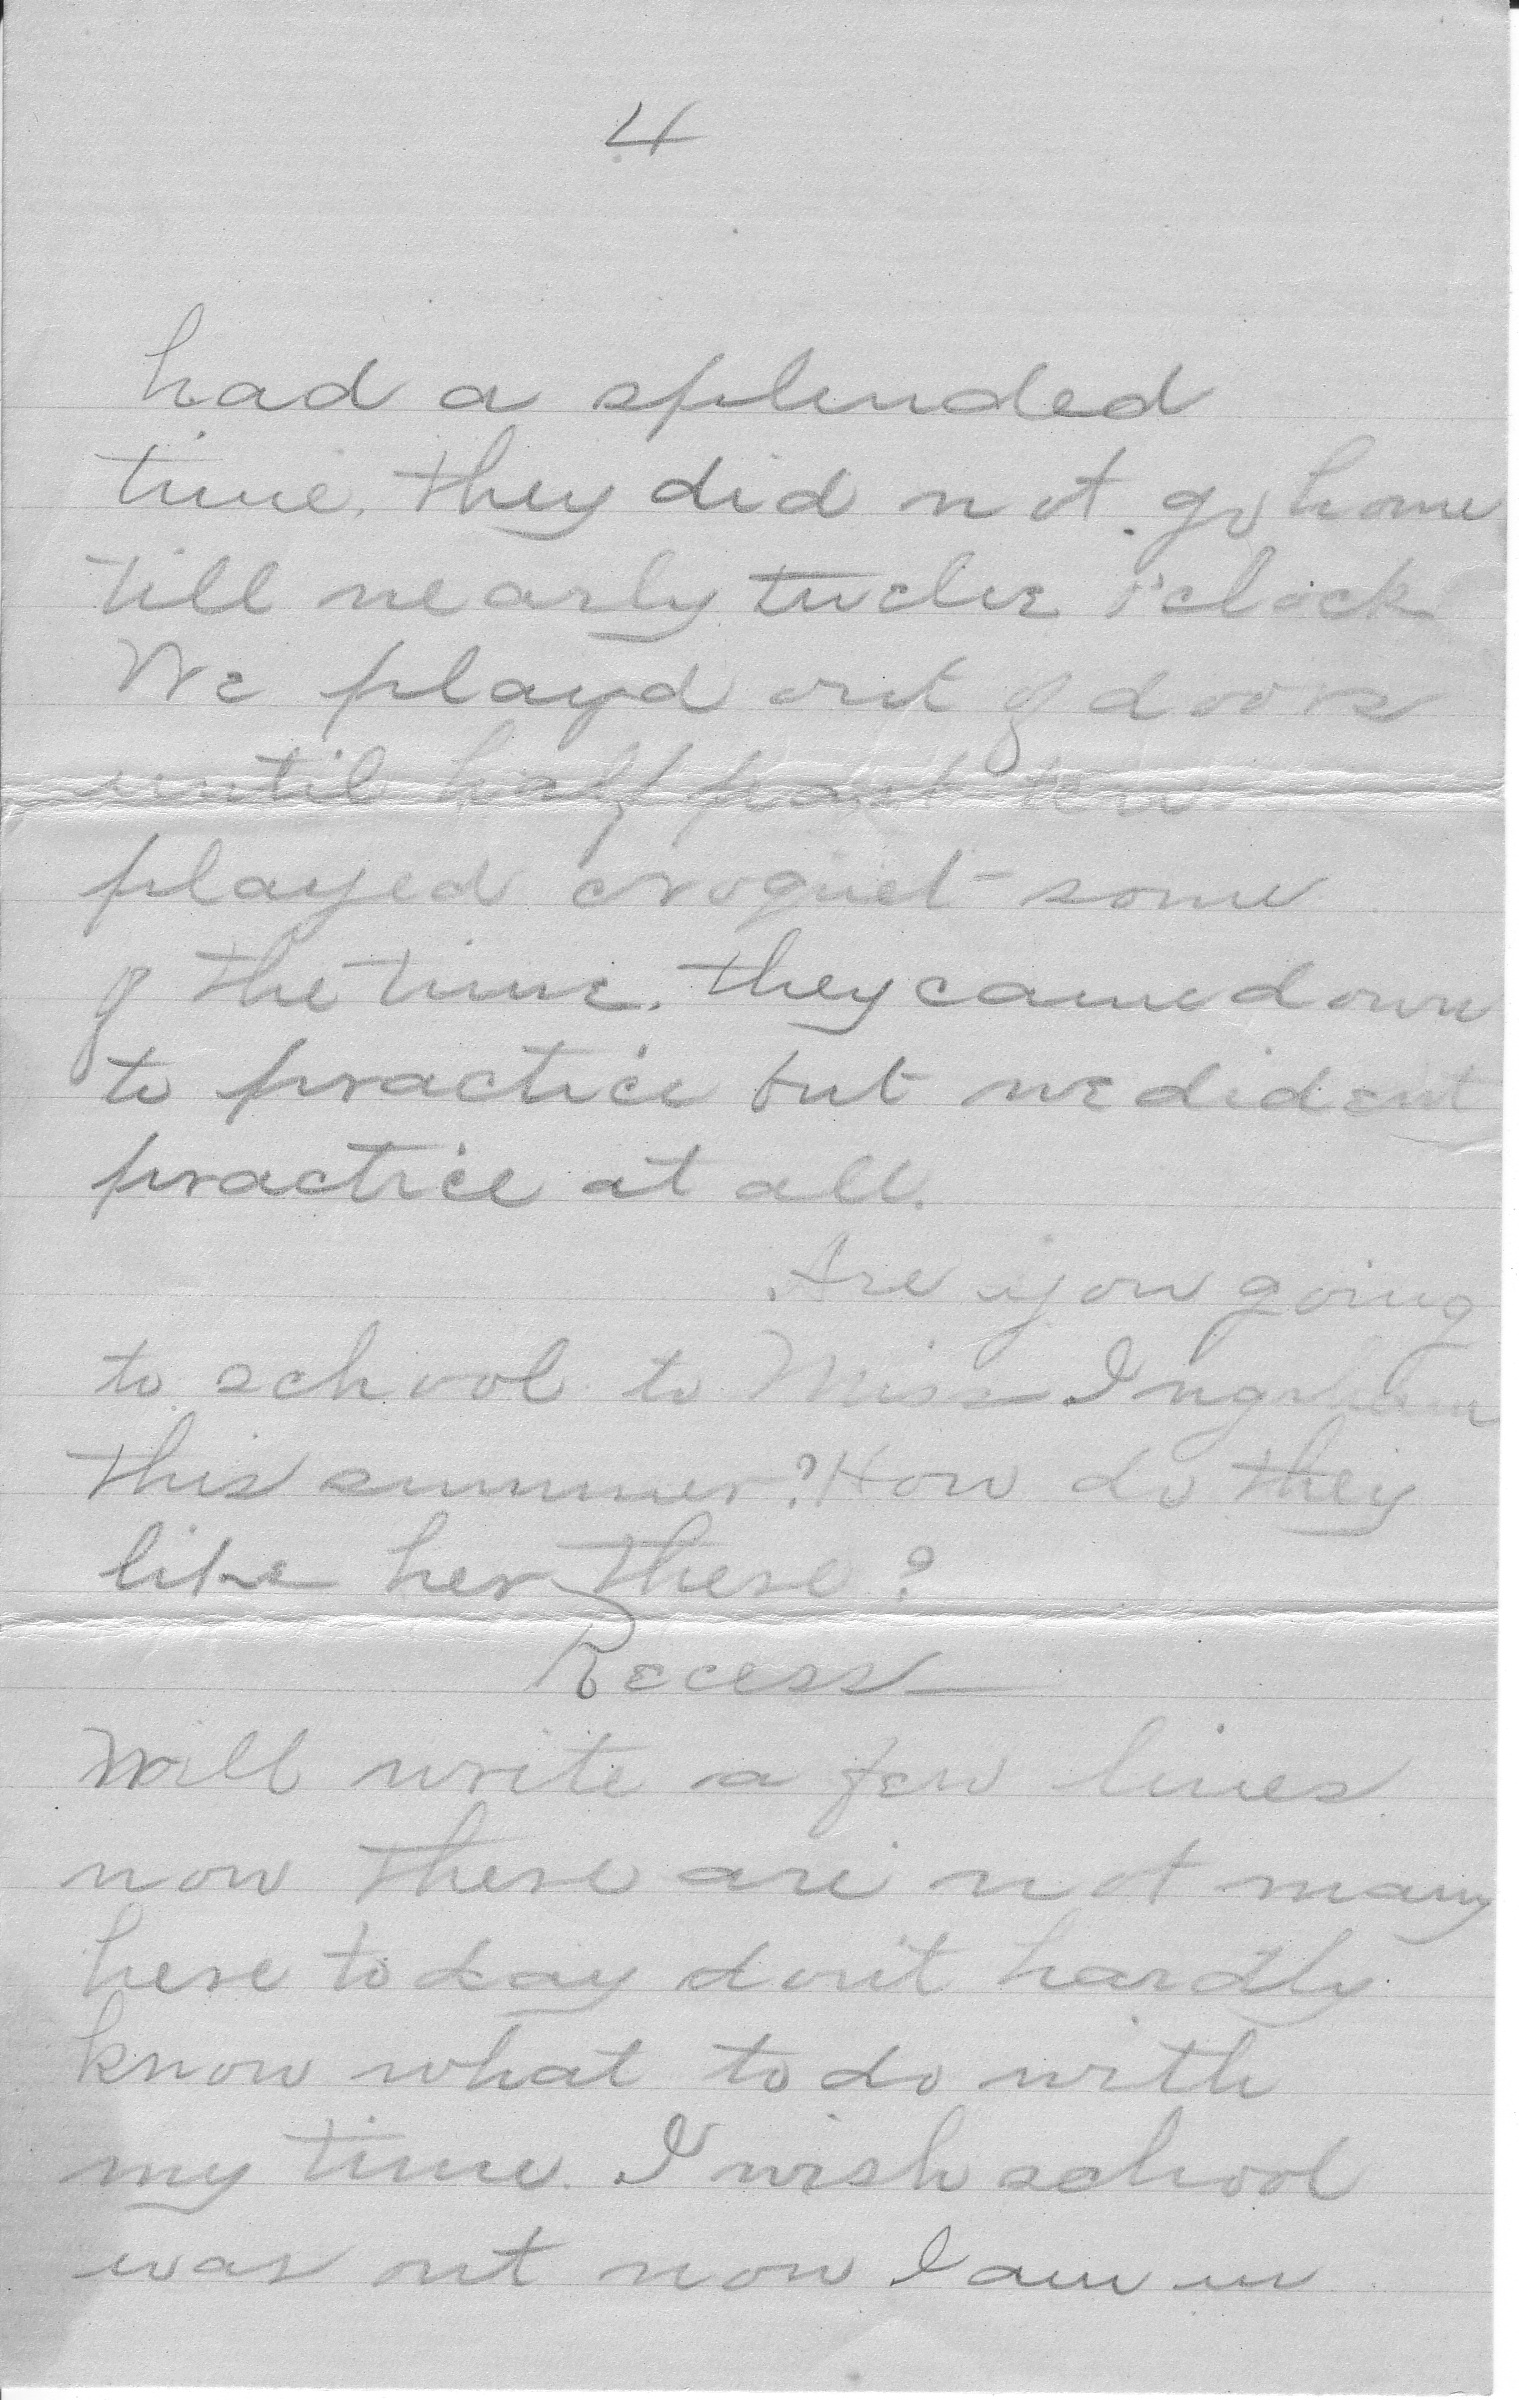 4
had a splended
time, they did not go home
till nearly twelve o'clock
We playd out of doors
until half past ten
played croquet some
of the time. they came down
to practice but we dident
practice at all.
Are you going
to school to Miss Ingraham
this summer? How do they
like her there?
Recess
Will write a few lines
now there are not many
here to day don't hardly
know what to do with
my time. I wish school
was out now I am in